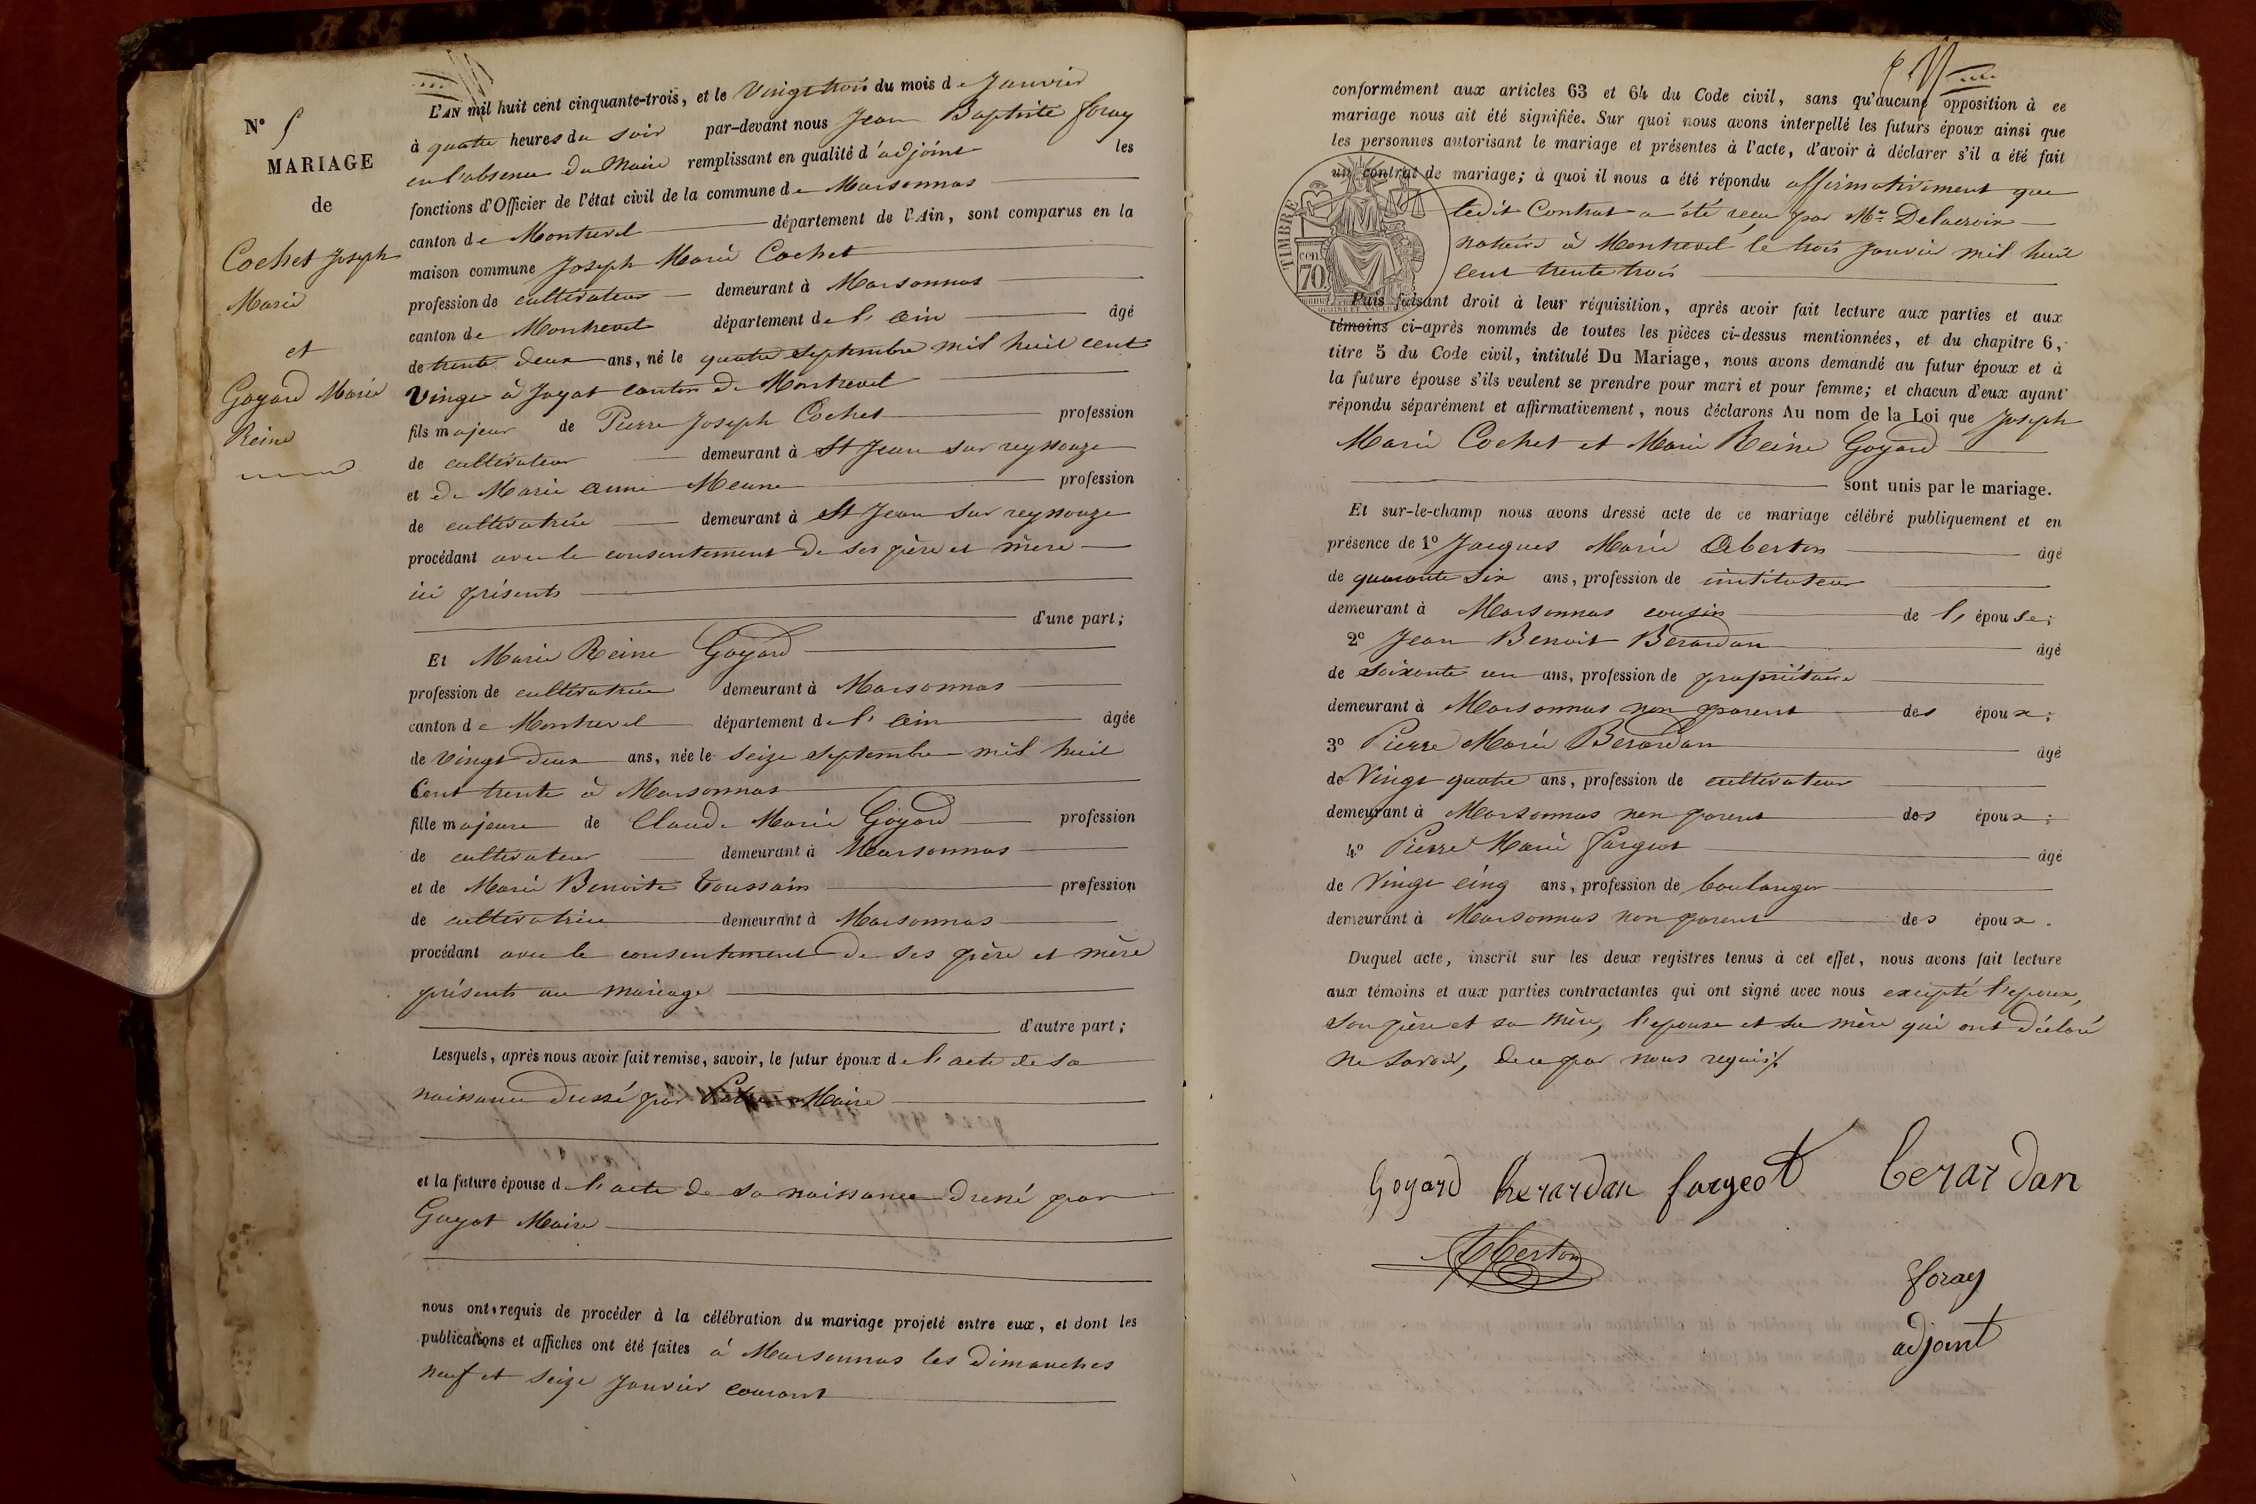 N° 5
MARIAGE
de
Cochet Joseph
Marie
et
Goyard Marie
Reine
L'AN mil huit cent cinquante-trois, et le Vingt trois du mois de Janvier
à quatre heures du soir par-devant nous Jean Baptiste foray
en l'absence du Maire remplissant en qualité d'adjoint les
fonctions d'Officier de l'état civil de la commune de Marsonnas
canton de Montrevel département de l'Ain, sont comparus en la
maison commune Joseph Marie Cochet
profession de cultivateur demeurant à Marsonnas
canton de Montrevel département de l'ain âgé
de trente deux ans, né le quatre septembre mil huit cent
Vingt à Jayat canton de Montrevel
fils majeur de Pierre Joseph Cochet profession
de cultivateur demeurant à St Jean sur reyssouze
et de Marie anne Meune profession
de cultivatrice demeurant à St Jean sur reyssouze
procédant avec le consentement de ses père et mère
ici présents
d'une part;
Et Marie Reine Goyard
profession de cultivatrice demeurant à Marsonnas
canton de Montrevel département de l'ain âgée
de vingt deux ans, née le seize septembre mil huit
Cent trente à Marsonnas
fille majeure de Claude Marie Goyard profession
de cultivateur demeurant à Marsonnas
et de Marie Benoite Toussain profession
de cultivatrice demeurant à Marsonnas
procédant avec le consentement de ses père et mère
présents au mariage
d'autre part;
Lesquels, après nous avoir fait remise, savoir, le futur époux de l'acte de sa
naissance dressé par Maire
et la future épouse de l'acte de sa naissance dressé par
Guyot Maire
nous ont requis de procéder à la célébration du mariage projeté entre eux, et dont les
publications et affiches ont été faites à Marsonnas les dimanches
neuf et seize Janvier courant
conformément aux articles 63 et 64 du Code civil, sans qu'aucune opposition à ce
mariage nous ait été signifiée. Sur quoi nous avons interpellé les futurs époux ainsi que
les personnes autorisant le mariage et présentes à l'acte, d'avoir à déclarer s'il a été fait
un contrat de mariage; à quoi il nous a été répondu affirmativement que
ledit Contrat a été reçu par Mr Delacroix
notaire à Montrevel le trois Janvier mil huit
cent trente trois
TIMBRE
cen
70
Puis faisant droit à leur réquisition, après avoir fait lecture aux parties et aux
témoins ci-après nommés de toutes les pièces ci-dessus mentionnées, et du chapitre 6,
titre 5 du Code civil, intitulé Du Mariage, nous avons demandé au futur époux et à
la future épouse s'ils veulent se prendre pour mari et pour femme; et chacun d'eux ayant
répondu séparément et affirmativement, nous déclarons Au nom de la Loi que Joseph
Marie Cochet et Marie Reine Goyard
sont unis par le mariage.
Et sur-le-champ nous avons dressé acte de ce mariage célébré publiquement et en
présence de 1° Jacques Marie Aberton âgé
de quarante six ans, profession de instituteur
demeurant à Marsonnas cousin de l'épouse;
2° Jean Benoit Berardan âgé
de soixante un ans, profession de propriétaire
demeurant à Marsonnas non parent des époux;
3° Pierre Marie Berardan âgé
de Vingt quatre ans, profession de cultivateur
demeurant à Marsonnas non parent des époux;
4° Pierre Marie fargeot âgé
de Vingt cinq ans, profession de boulanger
demeurant à Marsonnas non parent des époux.
Duquel acte, inscrit sur les deux registres tenus à cet effet, nous avons fait lecture
aux témoins et aux parties contractantes qui ont signé avec nous excepté l'epoux,
son père et sa mère, l'epouse et sa mère qui ont déclaré
ne savoir, de ce par nous requis.
Goyard berardan fargeot berardan
Aberton
foray
adjoint